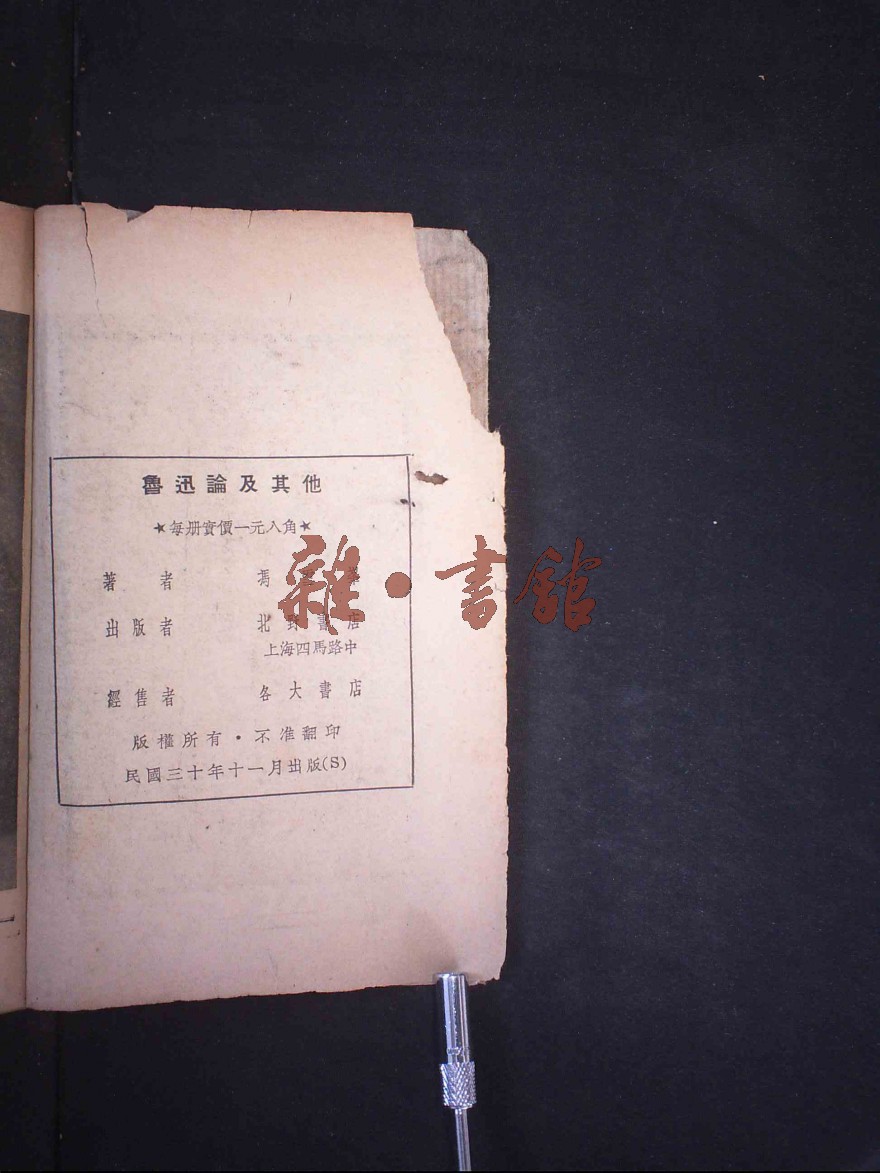 魯迅論及其他
★每册實價一元八角★
著者 馮
出版者 北野書店
上海四馬路中
經售者 各大書店
版權所有·不准翻印
民國三十年十一月出版(S)
雜·書館